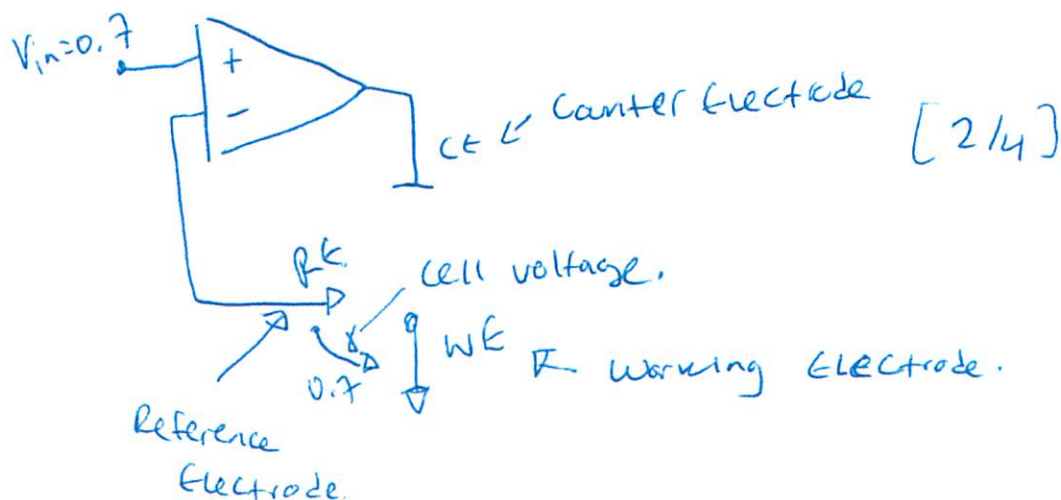 Vin=0.7
+
-
CE
Counter Electrode
[2/4]
RE
Cell voltage.
WE
Working Electrode.
0.7
Reference
Electrode.